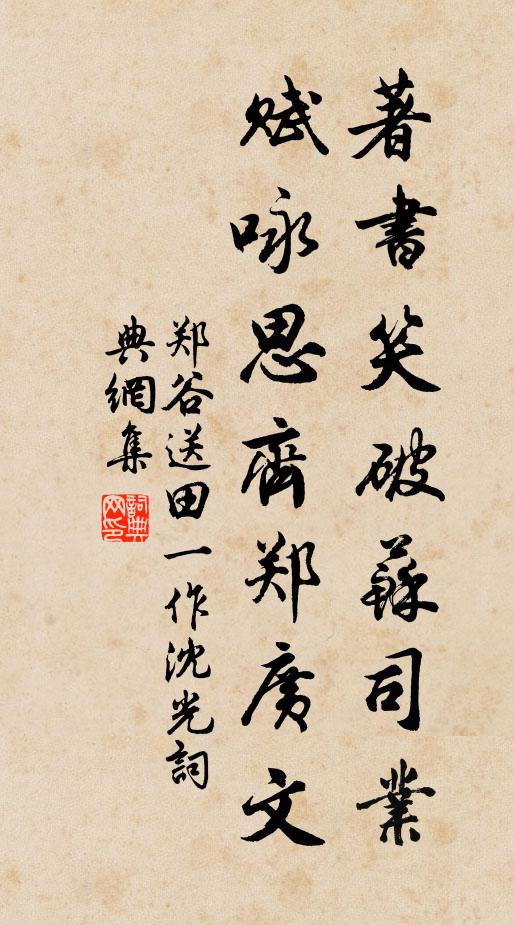 著書笑破蘇司業
賦咏思齊郑廣文
郑谷送田一作沈光詞
典網集
詞典网印